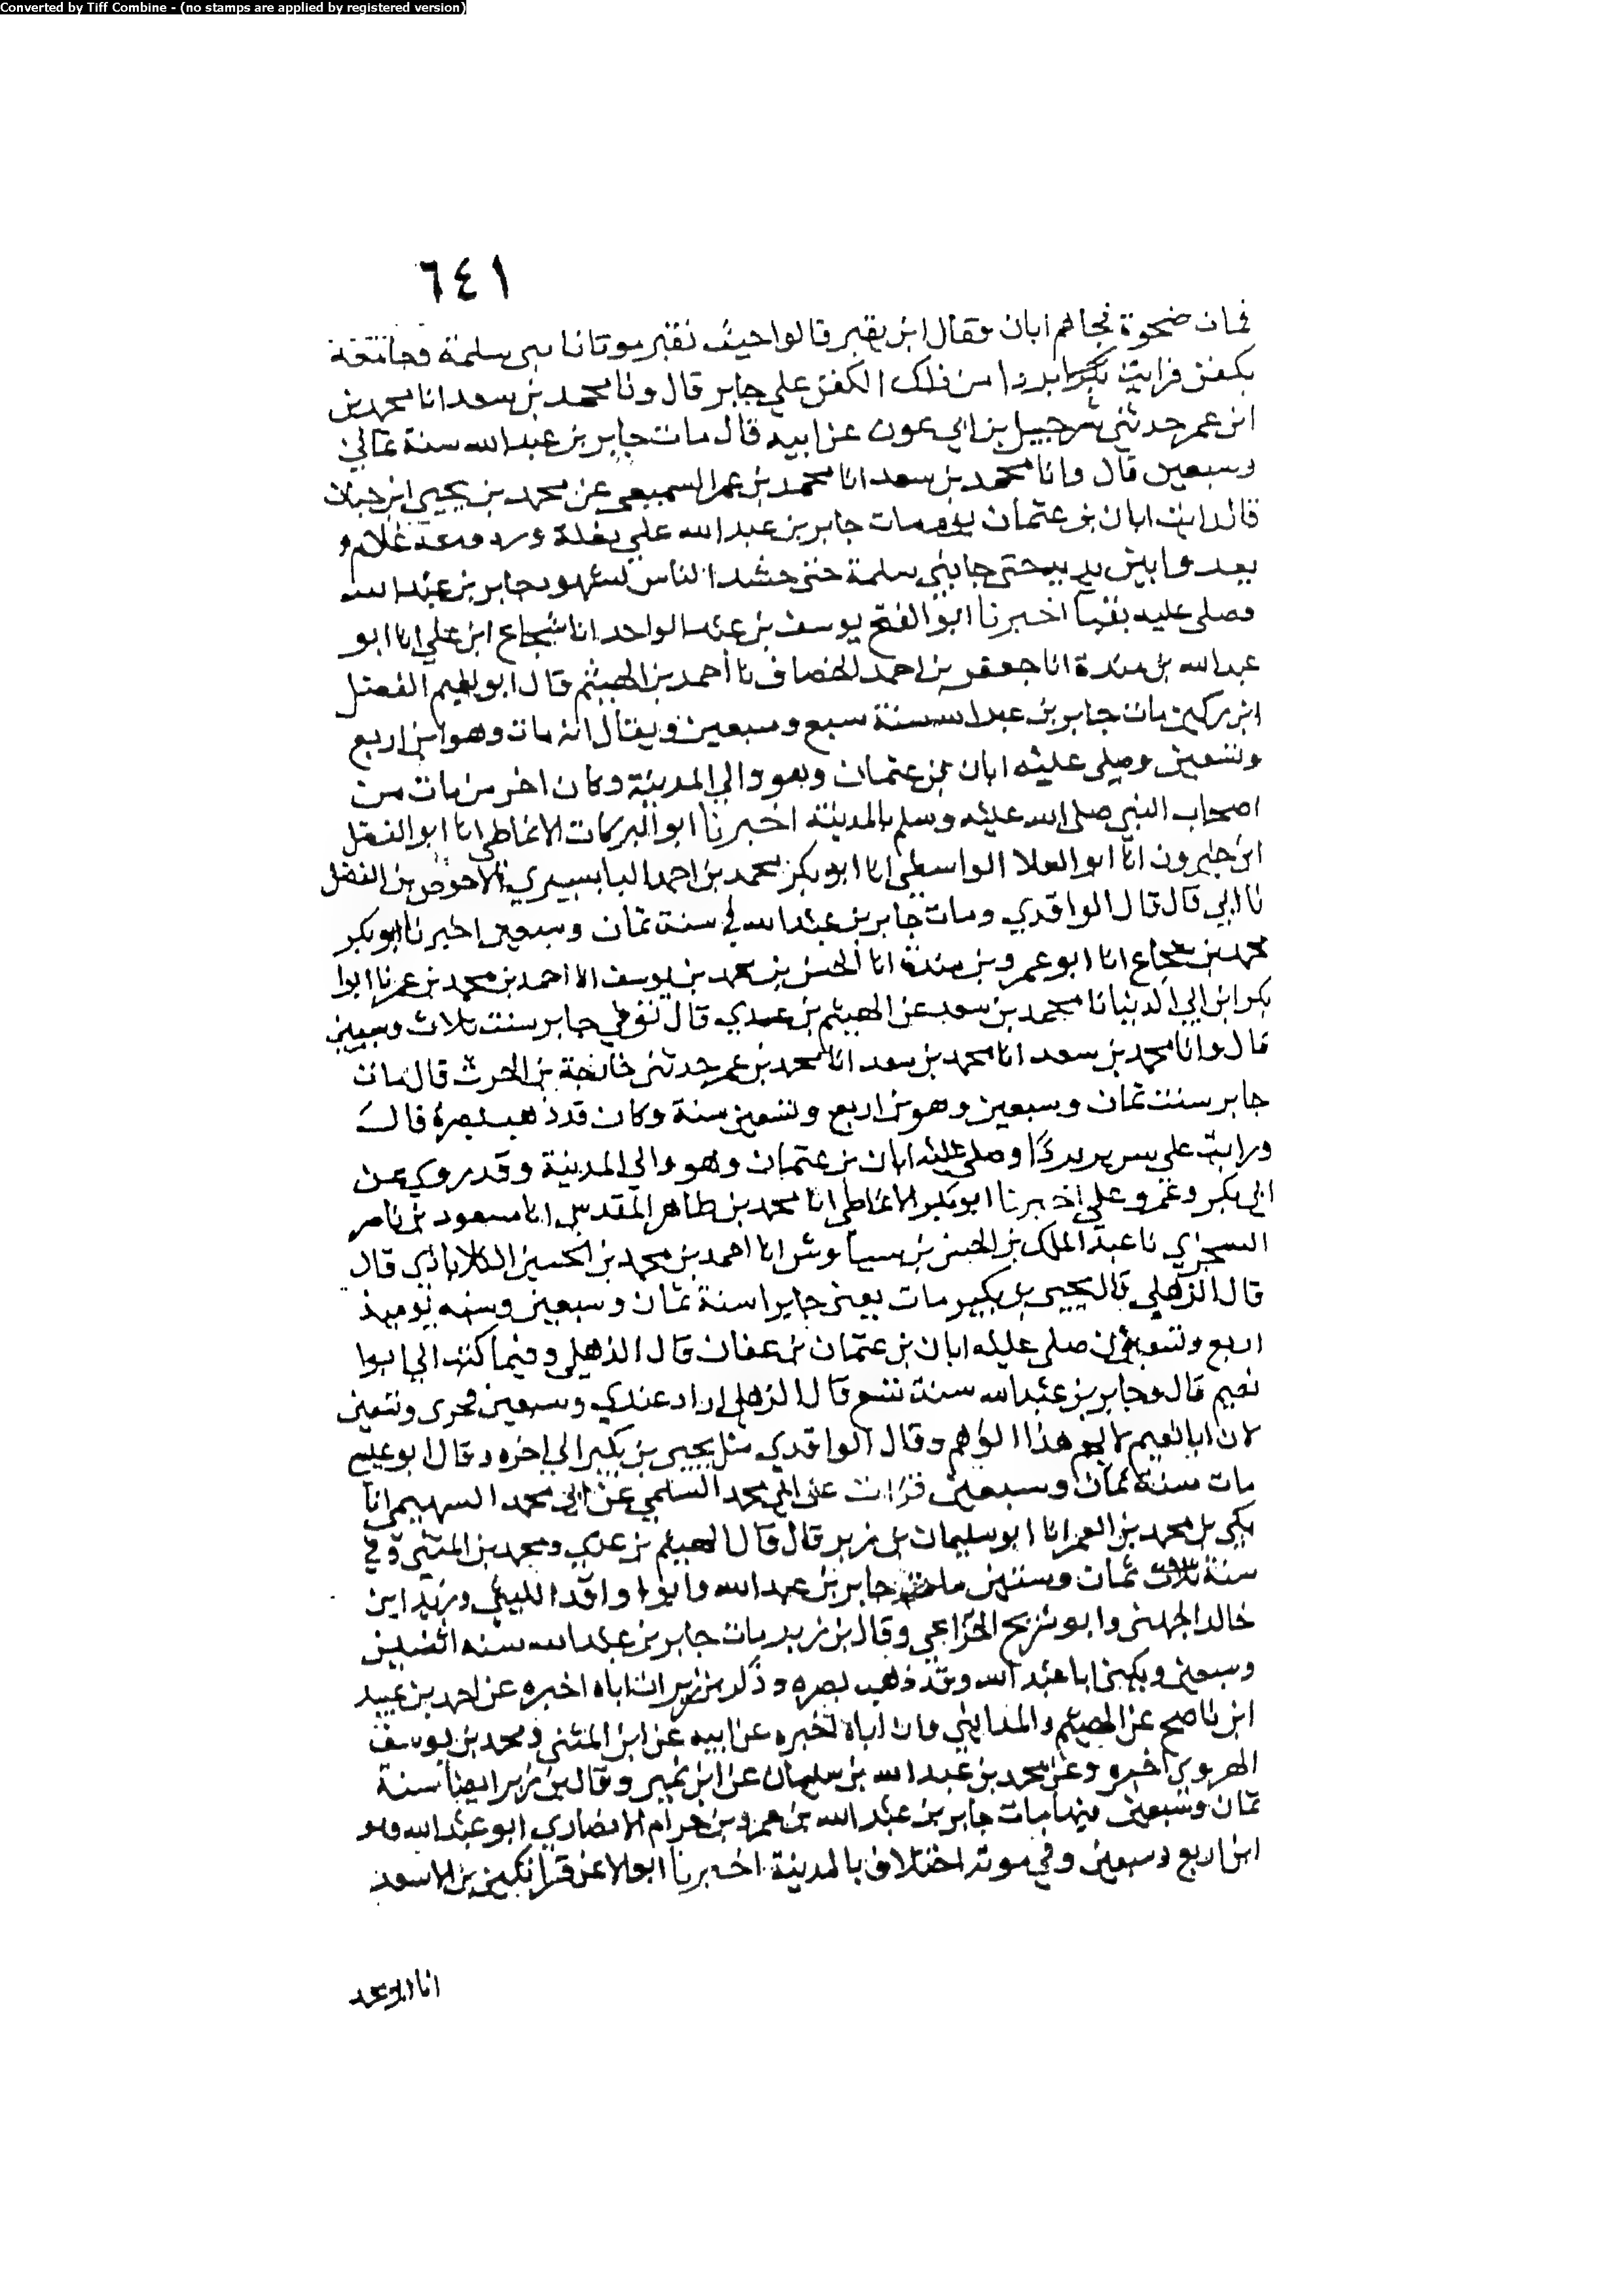 Converted by Tiff Combine - (no stamps are applied by registered version)
٦٤١
فمات ضحوة فجاهم ابان فقال اين يقبر قالوا حيث نقبر موتانا ببني سلمة فجا معه
بكفن فرايت بردا من ذلك الكفن علي جابر قال ونا محمد بن سعد انا محمد بن
ابن عمر حدثني شرحبيل بن ابي عون عن ابيه قال مات جابر بن عبد الله سنة ثماني
وسبعين قال وانا محمد بن سعد انا محمد بن عمر السميعي عن محمد بن يحيي ابن حبان
قال رايت ابان بن عثمان يوم مات جابر بن عبد الله علي بغلة ورد ومعه غلام
يعدوا بين يديه حتي جا بني سلمة حتي حشد الناس لشهود جابر بن عبد الله
فصلي عليه بقباء اخبرنا ابو الفتح يوسف بن عبد الواحد انا شجاع ابن علي انا ابو
عبد الله بن مندة انا جعفر بن احمد الخصاف نا احمد بن الهيثم قال ابو نعيم الفضل
ابن دكين مات جابر بن عبد الله سنة سبع وسبعين ويقال انه مات وهو ابن اربع
وتسعين وصلي عليه ابان بن عثمان وهو والي المدينة وكان اخر من مات من
اصحاب النبي صلي الله عليه وسلم بالمدينة اخبرنا ابو البركات الانماطي انا ابو الفضل
ابن خيرون انا ابو العلا الواسطي انا ابو بكر محمد بن احمد البابسيري نا الاحوص بن الفضل
نا ابي قال قال الواقدي ومات جابر بن عبد الله في سنة ثمان وسبعين اخبرنا ابو بكر
محمد بن شجاع انا ابو عمرو بن مندة انا الحسن بن محمد بن يوسف انا احمد بن محمد بن عمر نا ابوا
بكر ابن ابي الدنيا نا محمد بن سعد عن الهيثم بن عدي قال توفي جابر سنت ثلاث وسبعين
قال وانا محمد بن سعد انا محمد بن سعد انا محمد بن عمر حدثني خارجة بن الحرث قال مات
جابر سنت ثمان وسبعين وهو بن اربع وتسعين سنة وكان قد ذهب بصره قال
ورايت علي سريره بردا وصلي عليه ابان بن عثمان وهو والي المدينة وقد روي عن
ابي بكر وعمر وعلي اخبرنا ابو بكر الانماطي انا محمد بن طاهر المقدسي انا مسعود بن ناصر
السجزي نا عبد الملك بن الحسن بن سياوش انا احمد بن محمد بن الحسين الكلاباذي قال
قال الذهلي قال يحيي بن بكير مات يعني جابرا سنة ثمان وسبعين وسنه يوميذ
اربع وتسعين صلي عليه ابان بن عثمان بن عفان قال الذهلي وفيما كتب الي ابوا
نعيم قال وجابر بن عبد الله سنة تسع قال الذهلي اراد عندي وسبعين وتسعين
لان ابا نعيم لا يهم هذا الوهم وقال الواقدي مثل يحيي بن بكير الي اخره وقال ابو عيسي
مات سنة ثمان وسبعين قرات علي ابي محمد السلمي عن ابي محمد السهيمي انا
مكي بن محمد بن الغمر انا ابو سليمان بن زبر قال قال الهيثم بن عدي ومحمد بن المثني وفي
سنة ثمان وستين مات جابر بن عبد الله وابوا واقد الليثي وزيد ابن
خالد الجهني وابو شريح الخزاعي وقال بن زبر مات جابر بن عبد الله سنه اثنين
وسبعين ويكني ابا عبد الله وقد ذهب بصره وذكر بن زبر ان اباه اخبره عن احمد بن عبيد
ابن ناصح عن الهيثم والمدايني وان اباه اخبره عن ابيه عن ابن المثني ومحمد بن يوسف
الهروي اخبره وعن محمد بن عبد الله بن سليمان عن ابن نمير وقال بن زبر ايضا سنة
ثمان وسبعين فيها مات جابر بن عبد الله بن عمرو بن حرام الانصاري ابو عبد الله وهو
ابن اربع وسبعين وفي موته اختلاف بالمدينة اخبرنا ابو الاعز قراتكين بن الاسعد
انا ابو محمد